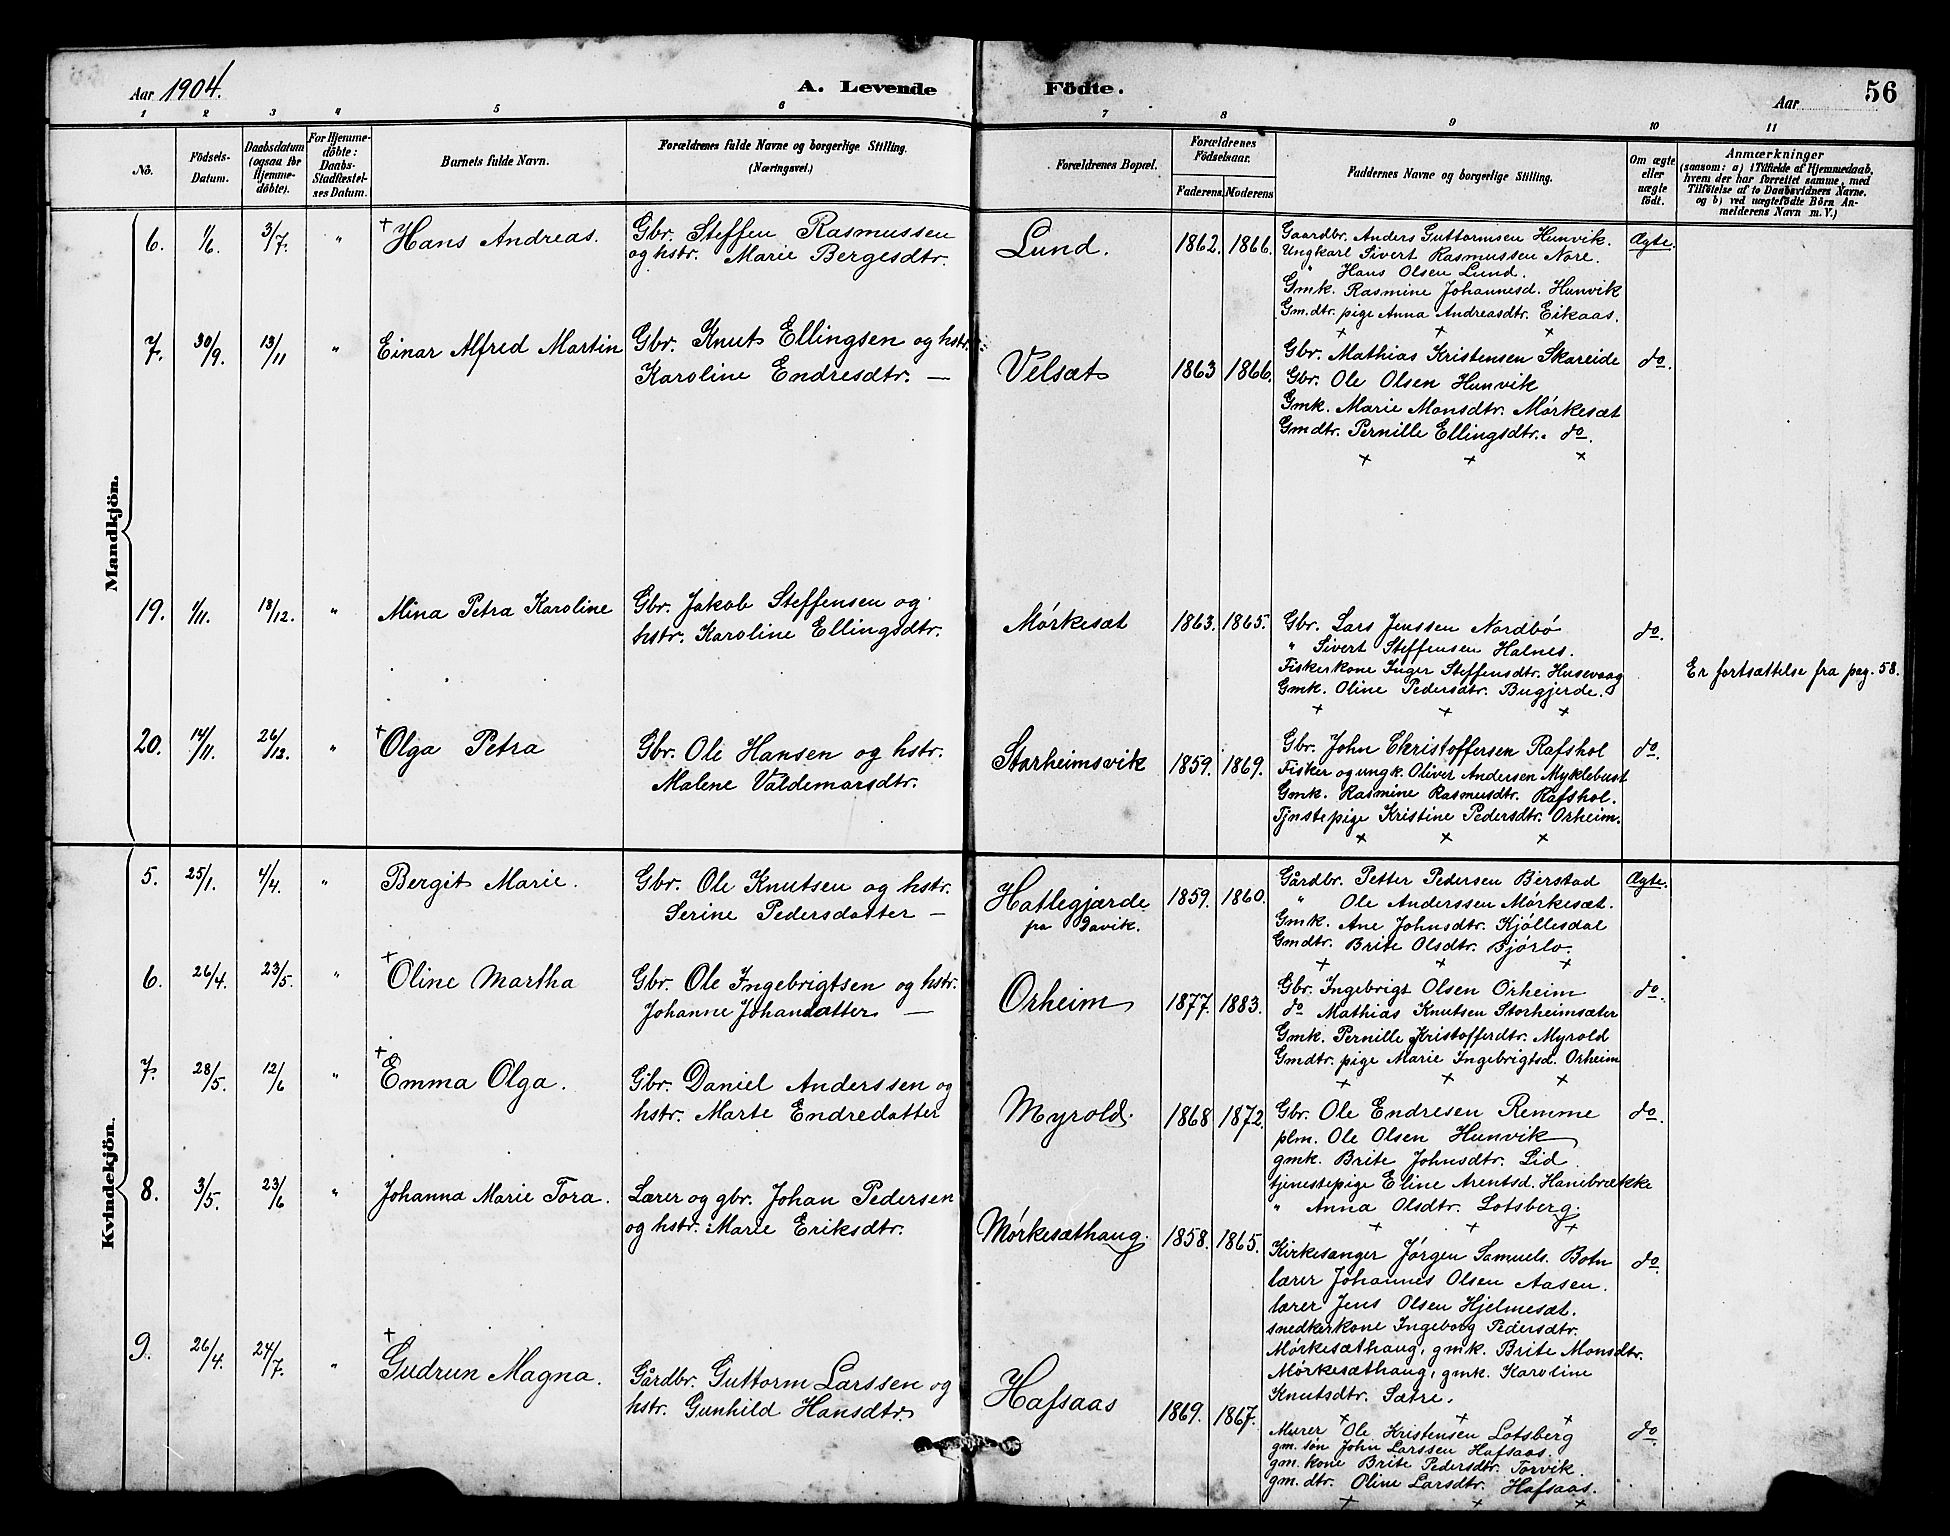 Aar 1904.
A. Levende Födte.
Aar
56
1 2 3 4 5 6 7 8 9 10 11
No.
Födsels-
Datum.
Daabsdatum
(ogsaa for
Hjemme-
döbte).
For Hjemme-
döbte:
Daabs-
Stadfæstel-
ses Datum.
Barnets fulde Navn.
Forældrenes fulde Navne og borgerlige Stilling.
(Næringsvei.)
Forældrenes Bopæl.
Forældrenes
Födselsaar.
Faderens. Moderens
Faddernes Navne og borgerlige Stilling.
Om ægte
eller
uægte
födt.
Anmærkninger
(saasom: a) i Tilfælde af Hjemmedaab,
hvem der har forrettet samme, med
Tilföielse af to Daabsvidners Navne,
og b) ved uægtefödte Börn An-
melderens Navn m. V.)
Mandkjön.
6. 1/6. 3/7. " + Hans Andreas.
Gbr. Steffen Rasmussen
og hstr. Marie Bergesdtr.
Lund. 1862. 1866.
Gaardbr. Anders Guttormsen Hunvik.
Ungkarl Sivert Rasmussen Nore.
" Hans Olsen Lund.
Gmk. Rasmine Johannesd. Hunvik
Gm.dtr. pige Anna Andreasdtr. Eikaas.
+ + +
Ægte.
7. 30/9. 13/11 " Einar Alfred Martin
Gbr. Knut Ellingsen og hstr.
Karoline Endresdtr. —
Velsæt 1863 1866.
Gbr. Mathias Kristensen Skareide
Gbr. Ole Olsen Hunvik
Gmk. Marie Monsdtr. Mörkesæt
Gmdtr. Pernille Ellingsdtr. do.
+ + +
do.
19. 1/11. 18/12. " Mina Petra Karoline
Gbr. Jakob Steffensen og
hstr. Karoline Ellingsdtr.
Mörkesæt 1863. 1865.
Gbr. Lars Jenssen Nordbö
" Sivert Steffensen Halnes.
Fiskerkone Inger Steffensdtr. Husevaag
Gmk. Oline Pedersdtr. Bugjerde.
+ + +
do.
Er fortsættelse fra pag. 58.
20. 14/11. 26/12. " + Olga Petra
Gbr. Ole Hansen og hstr.
Malene Valdemarsdtr.
Storheimsvik 1859. 1869.
Gbr. John Christoffersen Rafshol
Fisker og ungk. Oliver Andersen Myklebust
Gmk. Rasmine Rasmusdtr. Rafshol.
Tjnstepige Kristine Pedersdtr. Orheim.
+ + +
do.
Kvindekjön.
5. 25/1. 4/4. " Bergit Marie.
Gbr. Ole Knutsen og hstr.
Serine Pedersdatter —
Hatlegjærde
pa Davik.
1859. 1860.
Gårdbr. Petter Pedersen Berstad
" Ole Anderssen Mörkesæt.
Gmk. Ane Johnsdtr. Kjöllesdal
Gmdtr. Brite Olsdtr. Bjórlo.
+ + +
Ægte.
6. 26/4. 23/5. " + Oline Martha
Gbr. Ole Ingebrigtsen og hstr.
Johanne Johansdatter —
Orheim 1877. 1883.
Gbr. Ingebrigt Olsen Orheim
do Mathias Knutsen Storheimsæter
Gmk. Pernille Kristofferdtr. Myrold
Gmdtr. pige Marie Ingebrigtsd. Orheim
+ + +
do.
7. 28/5. 12/6 " + Emma Olga.
Gbr. Daniel Anderssen og
hstr. Marte Endredatter
Myrold. 1868 1872.
Gbr. Ole Endresen Remme
plm. Ole Olsen Hunvik
gmk. Brite Johnsdtr. Lid
tjenestepige Eline Arentsd. Hanebrække
" Anna Olsdtr. Lotsberg.
+ + +
do.
8. 3/5. 23/6 " Johanna Marie Tora.
Lærer og gbr. Johan Pedersen
og hstr. Marie Eriksdtr.
Mórkesæthaug. 1858. 1865.
Kirkesanger Jórgen Samuels. Botn
lærer Johannes Olsen Aasen.
lærer Jens Olsen Hjelmesæt.
snedkerkone Ingeborg Pedersdtr.
Mórkesæthaug, gmk. Brite Monsdtr.
Mórkesæthaug, gmk. Karoline
Knutsdtr. Sætre.
+ + +
do.
9. 26/4. 24/7. " + Gudrun Magna.
Gårdbr. Guttorm Larssen og
hstr. Gunhild Hansdtr.
Hafsaas 1869. 1867.
Murer Ole Kristensen Lotsberg
gm. sön John Larssen Hafsaas.
gm. kone Brite Pedersdtr. Torvik.
gm. dtr. Oline Larsdtr. Hafsaas.
+ + +
do.